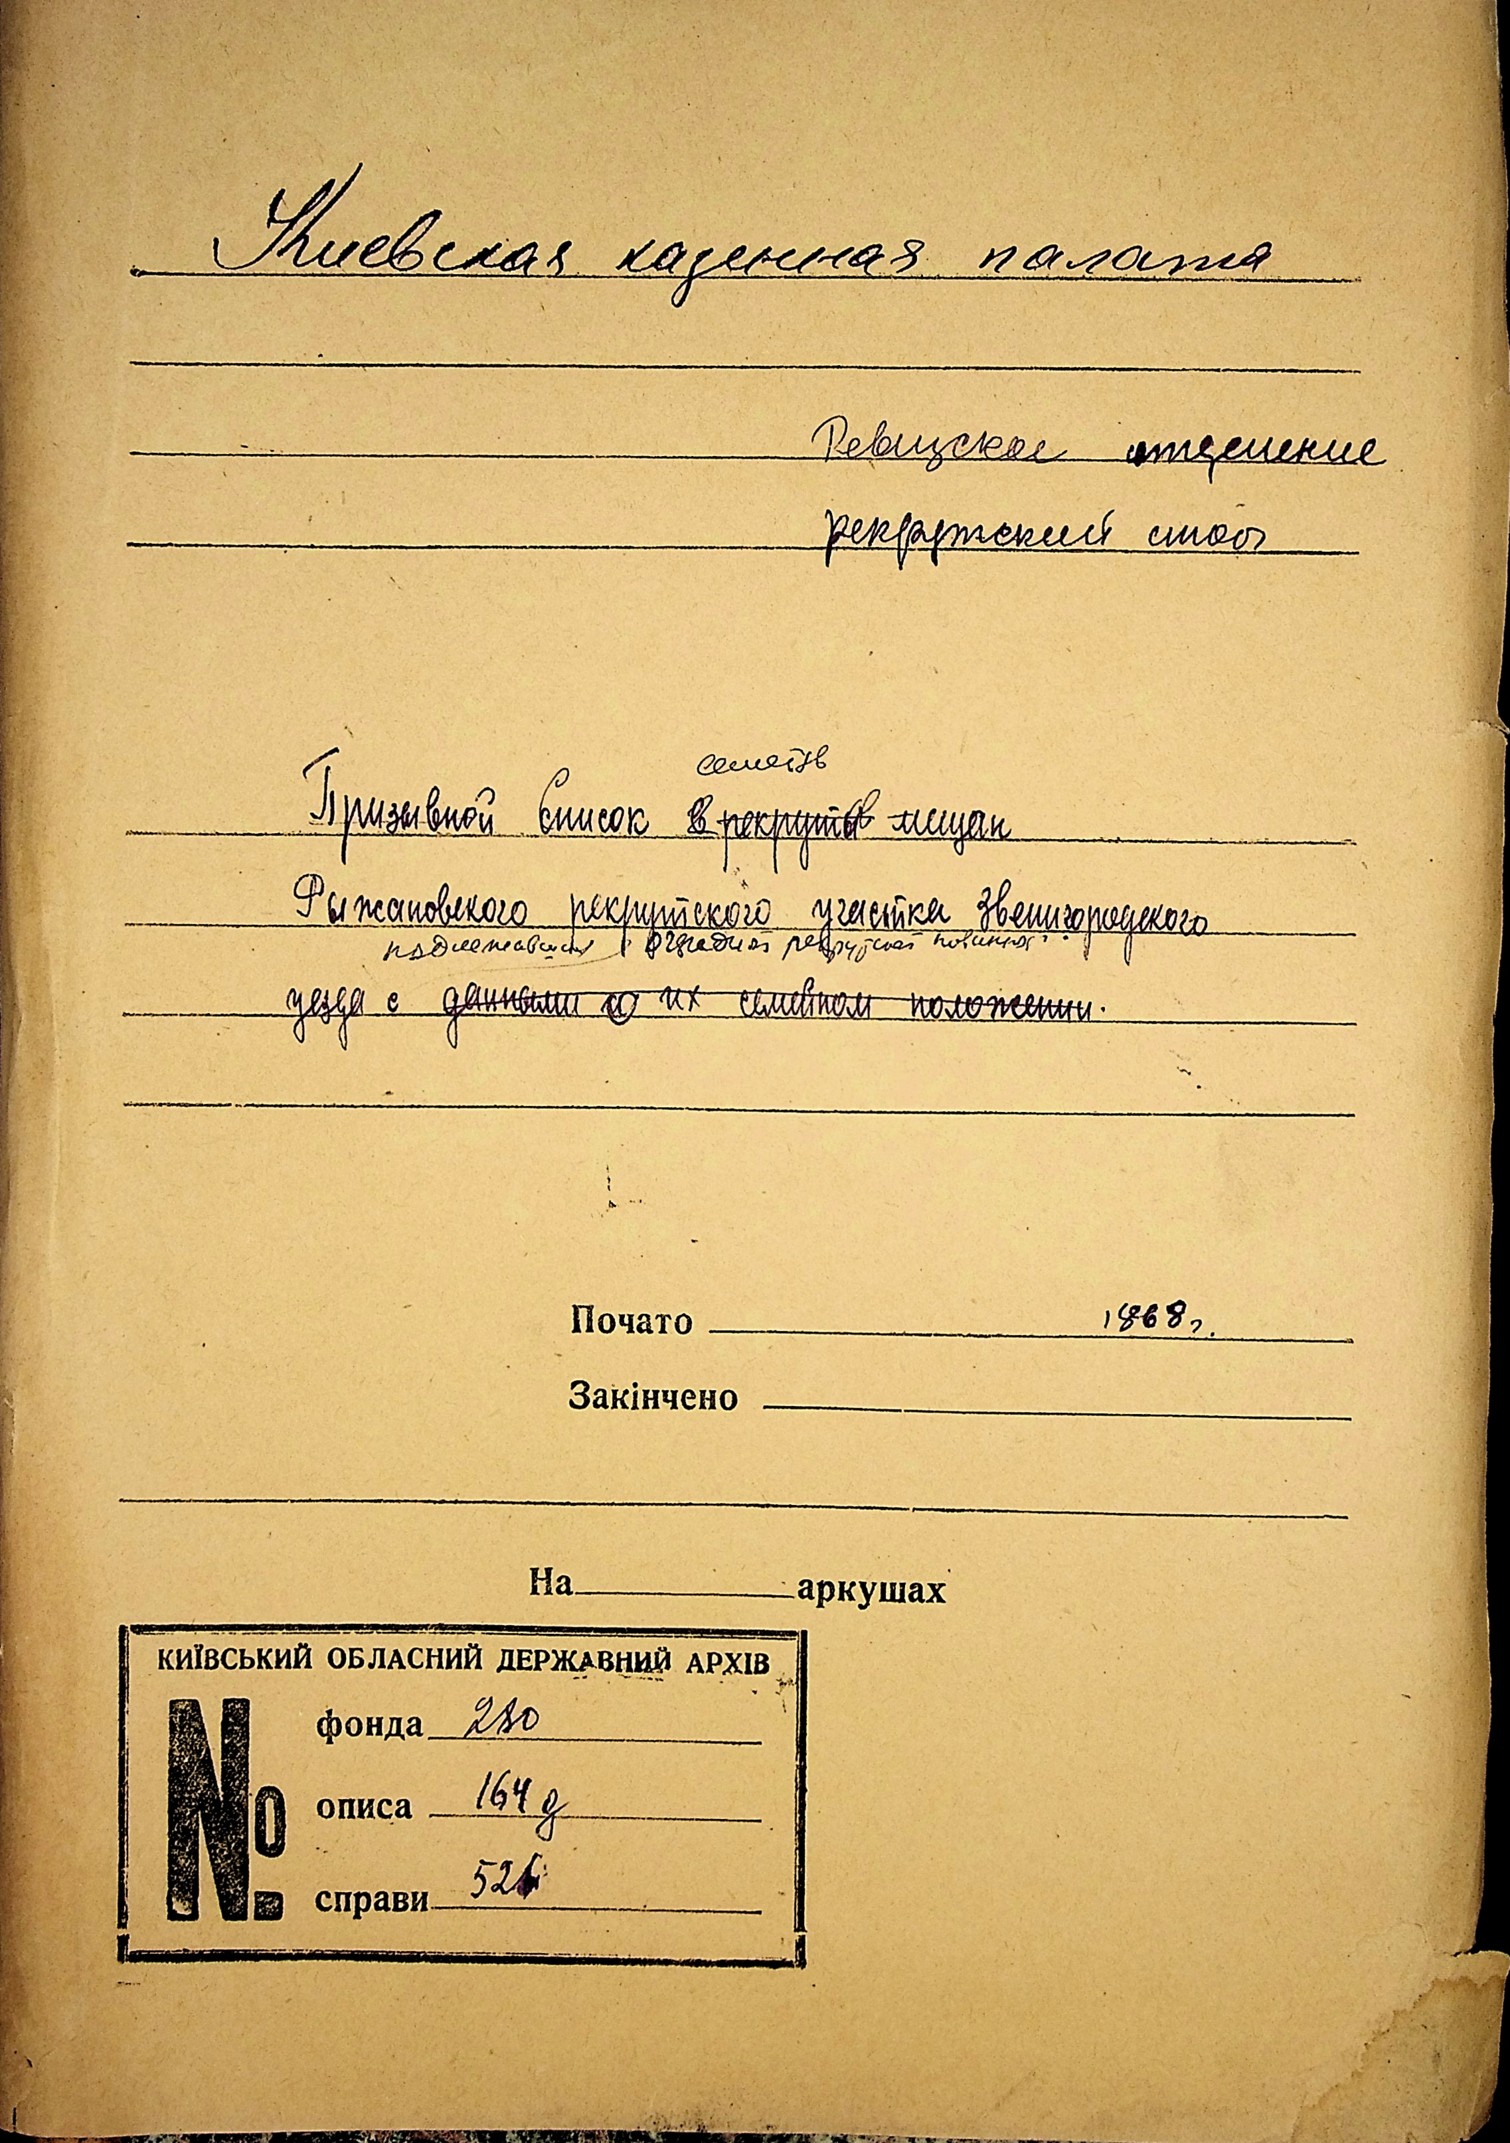 Киевская казенная палата
Ревизское отделение
рекрутский стол
семейств
Призывной список в рекруты мещан
Рыжановского рекрутского участка Звенигородского
подлежавших очередной рекрутской
уезда с данными о их семейном положении.
Почато 1868 г.
Закінчено
На аркушах
КИЇВСЬКИЙ ОБЛАСНИЙ ДЕРЖАВНИЙ АРХІВ
№
фонда 280
описа 164 д
справи 526